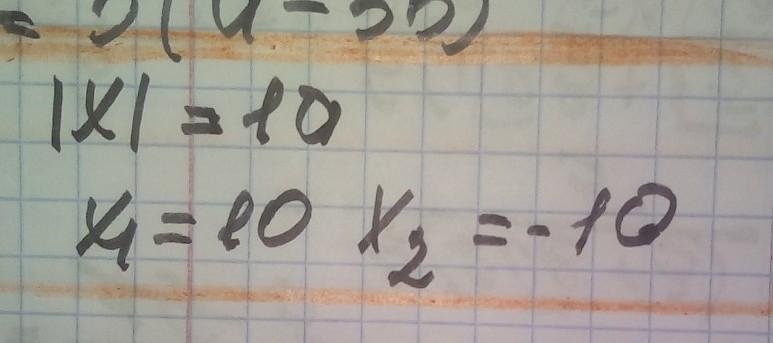 |x| = 10
x₁ = 10 x₂ = -10